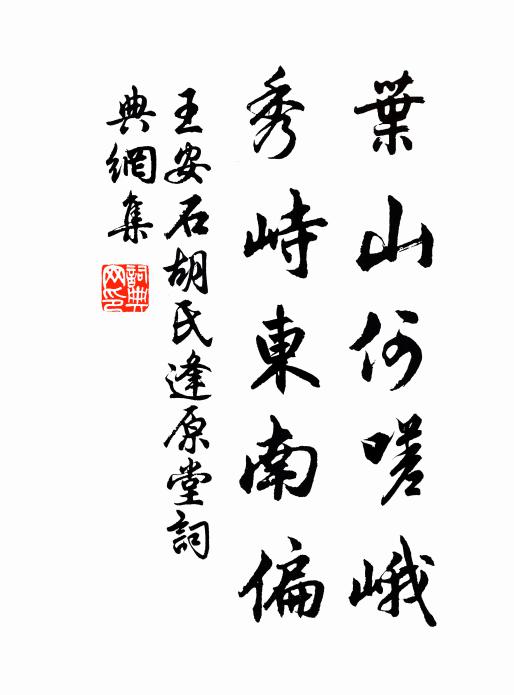 葉山何嗟峨
秀峙東南偏
王安石胡氏逢原堂詞
典網集
詞典
網印